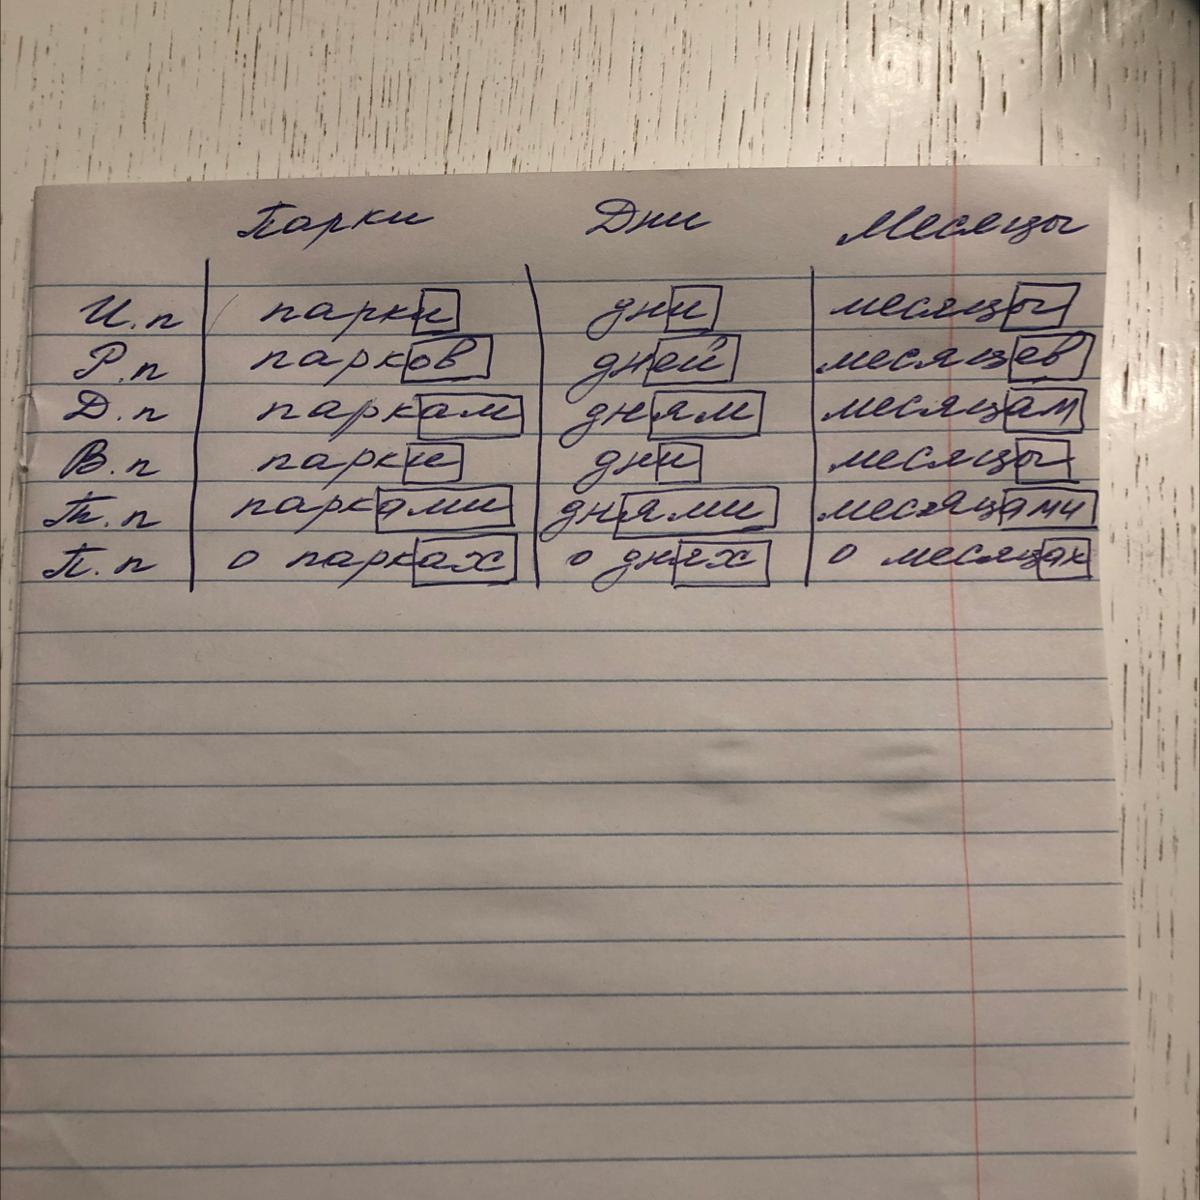 Парки Дни Месяцы
И.п парки дни месяцы
Р.п парков дней месяцев
Д.п паркам дням месяцам
В.п парки дни месяцы
Т.п парками днями месяцами
П.п о парках о днях о месяцах